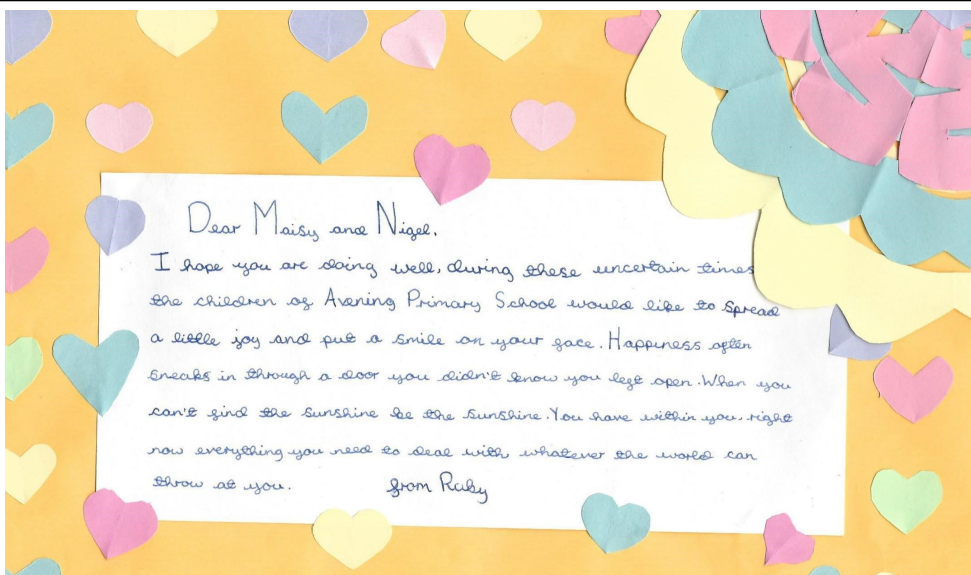 Dear Maisy and Nigel.
I hope you are doing well, during these uncertain times
the children of Avening Primary School would like to spread
a little joy and put a smile on your face. Happiness often
sneaks in through a door you didn't know you left open. When you
can't find the sunshine be the sunshine. You have within you, right
now everything you need to deal with whatever the world can
throw at you. from Ruby